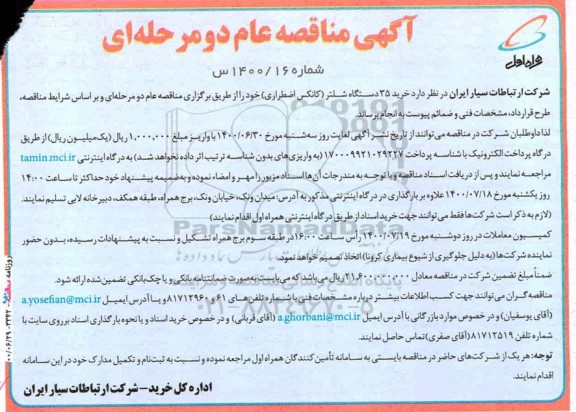 آگهی مناقصه عام دو مرحله‌ای
شماره ۱۴۰۰/۱۶س
همراه اول
شرکت ارتباطات سیار ایران در نظر دارد خرید ۳۵ دستگاه شلتر (کانکس اضطراری) خود را از طریق برگزاری مناقصه عام دو مرحله‌ای و بر اساس شرایط مناقصه،
طرح قرارداد، مشخصات فنی و ضمائم پیوست به انجام برساند.
لذا داوطلبان شرکت در مناقصه می‌توانند از تاریخ نشر آگهی لغایت روز سه‌شنبه مورخ ۱۴۰۰/۰۶/۳۰ با واریز مبلغ ۱,۰۰۰,۰۰۰ ریال (یک‌میلیون ریال) از طریق
درگاه پرداخت الکترونیک با شناسه پرداخت ۱۷۰۰۰۹۹۲۱۰۲۹۲۲۷ (به واریزی‌های بدون شناسه ترتیب اثر داده نخواهد شد) به درگاه اینترنتی tamin.mci.ir
مراجعه نمایند و پس از دریافت اسناد مناقصه و با توجه به مندرجات آن‌ها اسناد مزبور را مهر و امضاء نموده و به ضمیمه پیشنهاد خود حداکثر تا ساعت ۱۴:۰۰
روز یکشنبه مورخ ۱۴۰۰/۰۷/۱۸ علاوه بر بارگذاری در درگاه اینترنتی مذکور به آدرس: میدان ونک، خیابان ونک، برج همراه، طبقه همکف، دبیرخانه لابی تسلیم نمایند.
(لازم به ذکر است شرکت‌ها فقط می‌توانند جهت خرید اسناد از طریق درگاه اینترنتی همراه اول اقدام نمایند)
کمیسیون معاملات در روز دوشنبه مورخ ۱۴۰۰/۰۷/۱۹ رأس ساعت ۱۶:۰۰ در طبقه سوم برج همراه تشکیل و نسبت به پیشنهادات رسیده، بدون حضور
نماینده شرکت‌ها (به دلیل جلوگیری از شیوع بیماری کرونا) اتخاذ تصمیم خواهد نمود.
ضمناً مبلغ تضمین شرکت در مناقصه معادل ۲۱,۶۰۰,۰۰۰,۰۰۰ ریال می‌باشد که می‌بایست به صورت ضمانتنامه بانکی و یا چک بانکی تضمین شده ارائه شود.
مناقصه‌گران می‌توانند جهت کسب اطلاعات بیشتر درباره مشخصات فنی با شماره تلفن‌های ۶۱ و ۸۱۷۱۲۹۶۰ و یا آدرس ایمیل a.yosefian@mci.ir
(آقای یوسفیان) و در خصوص موارد بازرگانی با آدرس ایمیل a.ghorbani@mci.ir (آقای قربانی) و در خصوص خرید اسناد و یا نحوه بارگذاری اسناد بر روی سایت با
شماره تلفن ۸۱۷۱۲۵۱۹ (آقای صفری) تماس حاصل نمایند.
توجه: هر یک از شرکت‌های حاضر در مناقصه بایستی به سامانه تأمین‌کنندگان همراه اول مراجعه نموده و نسبت به ثبت‌نام و تکمیل مدارک خود در این سامانه
اقدام نمایند.
اداره کل خرید - شرکت ارتباطات سیار ایران
ParsNamadData